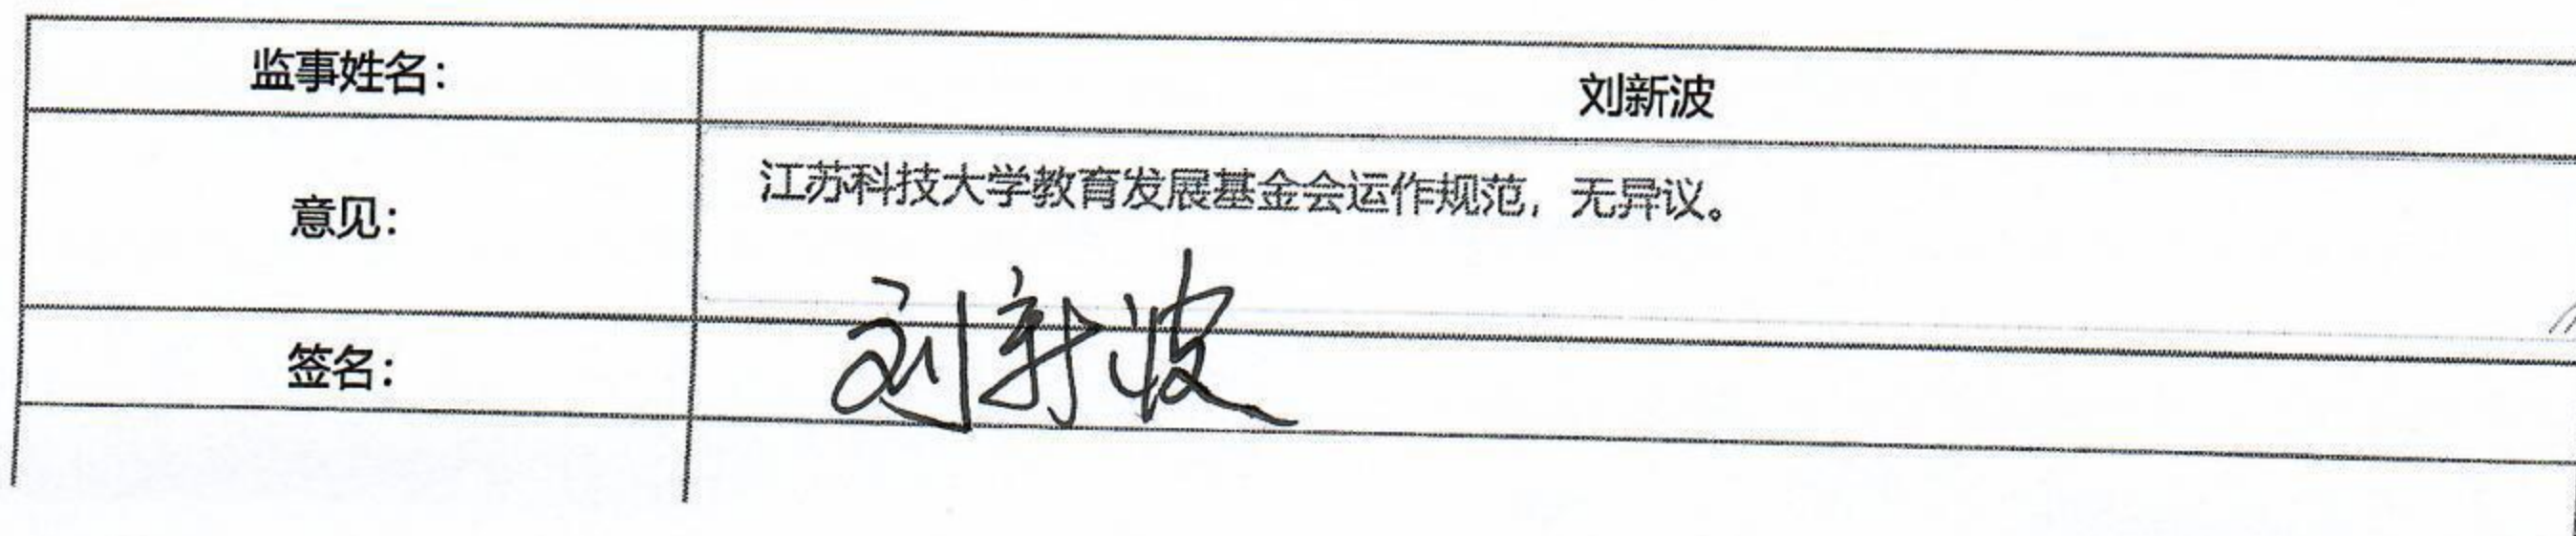 监事姓名： 刘新波
意见： 江苏科技大学教育发展基金会运作规范，无异议。
签名： 刘新波